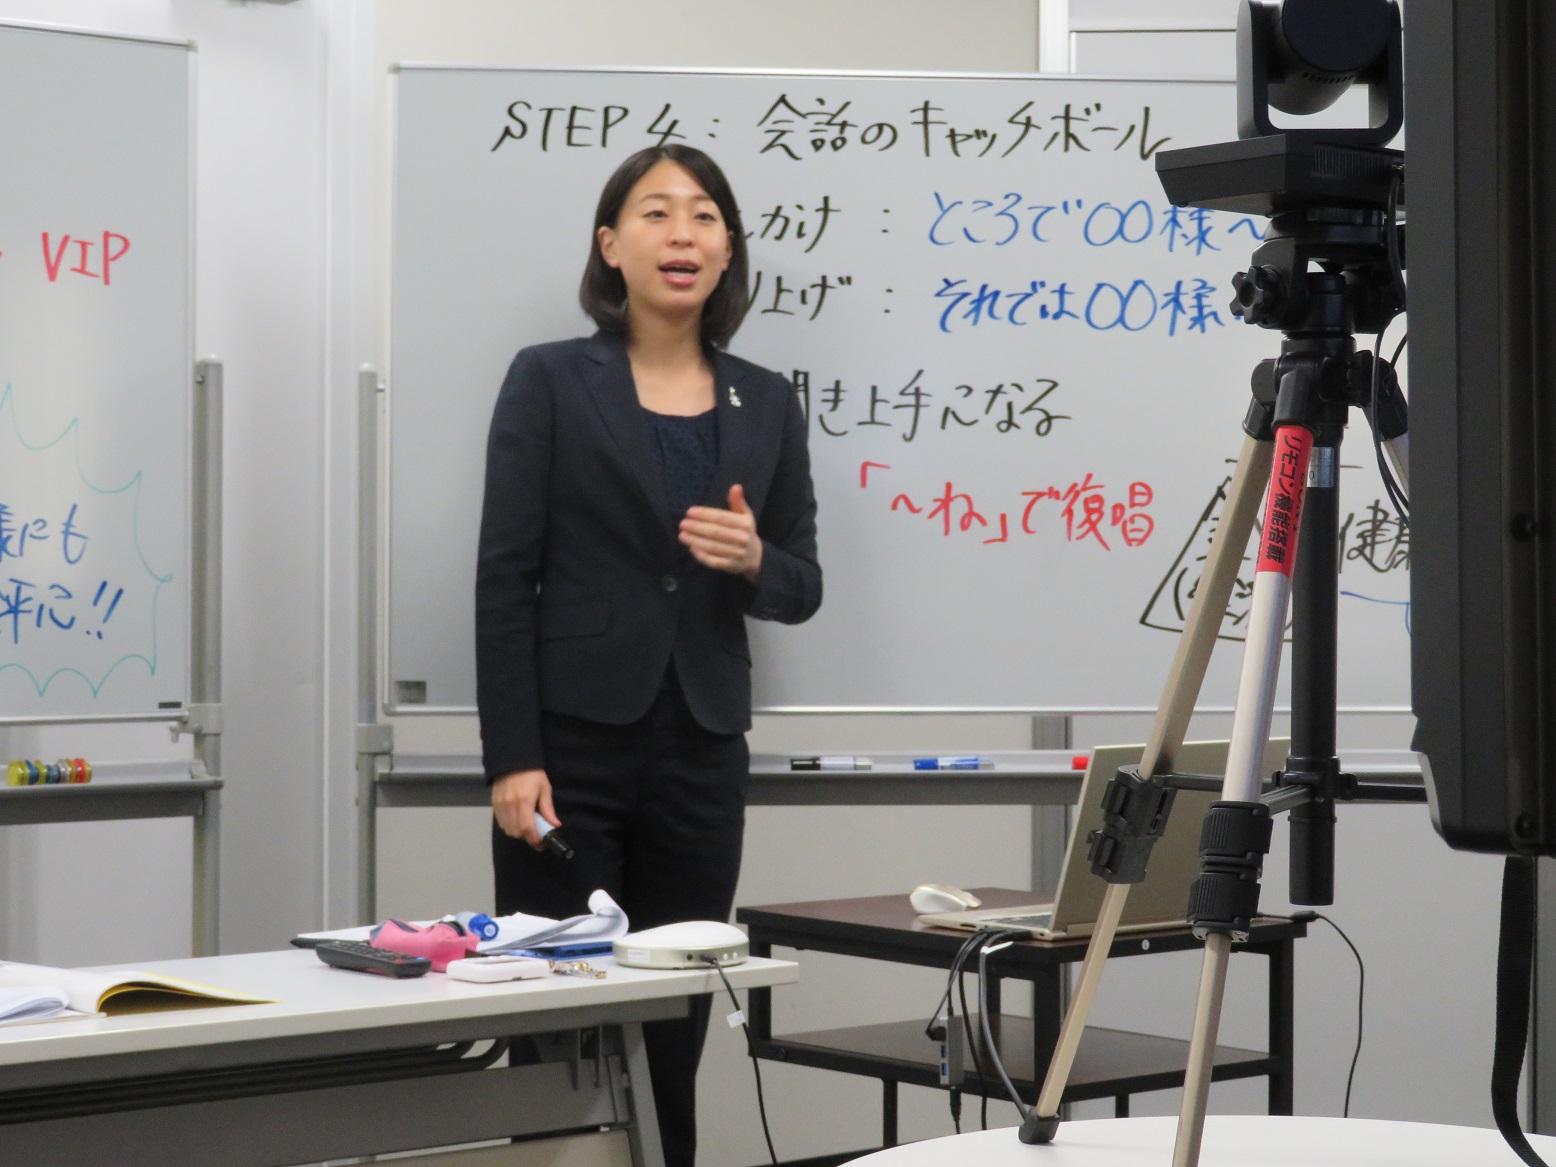 VIP
様にも
平心!!
STEP 4: 会話のキャッチボール
かけ : ところで〇〇様〜
上げ : それでは〇〇様
聞き上手になる
「〜ね」で復唱
健
リモコン機能搭載